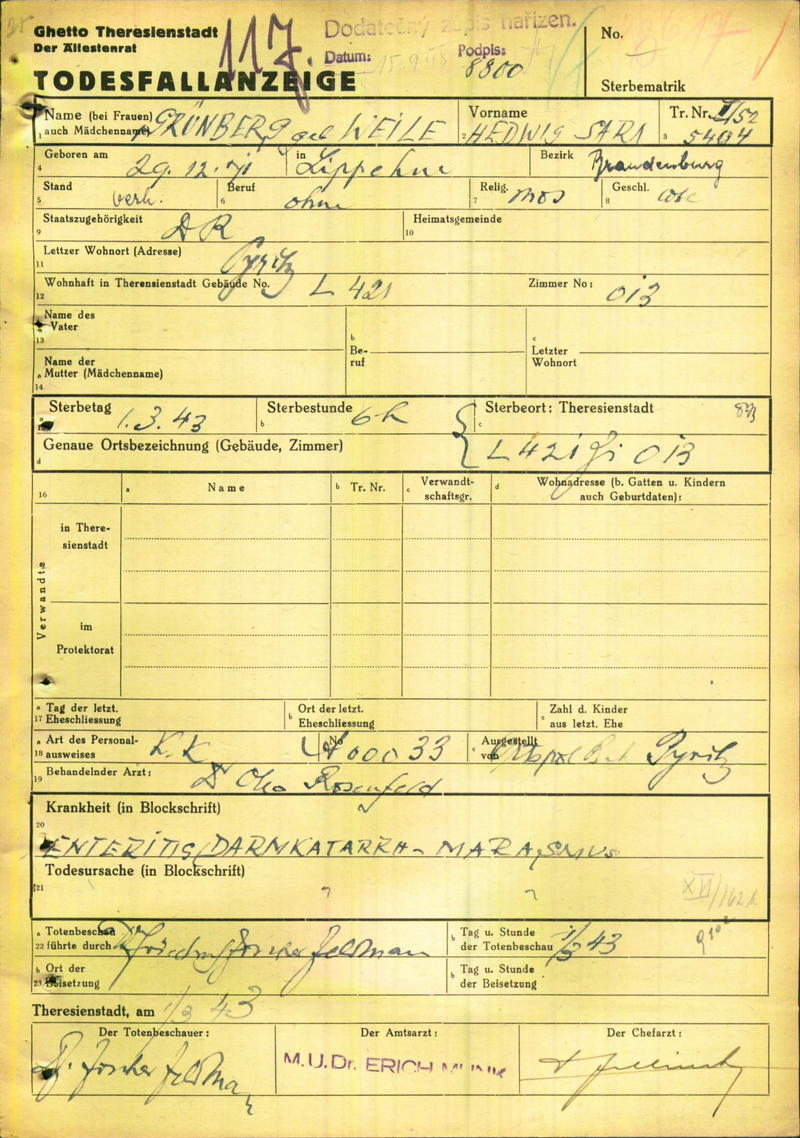 Ghetto Theresienstadt
Der Ältestenrat
TODESFALLANZEIGE
117.
Dodatečný zápis nařízen.
Datum: 15.9.48 Podpis:
8800
No.
Sterbematrik
Name (bei Frauen) GRÜNBERG geb WEILE
1 auch Mädchenname)
Vorname
2 HEDWIG SARA
Tr. Nr. II/52
3 5404
Geboren am 29.12.71 in Lippehne Bezirk Brandenburg
4
Stand verh. Beruf ohne Relig. mos Geschl.
5 6 7 8
Staatszugehörigkeit DR Heimatsgemeinde
9 10
Lettzer Wohnort (Adresse) Pyritz
11
Wohnhaft in Therensienstadt Gebäude No. L 421 Zimmer No: 013
12
Name des
a Vater
13
b
Be-
ruf
c
Letzter
Wohnort
Name der
a Mutter (Mädchenname)
14
Sterbetag 1.3.43 Sterbestunde 6 h Sterbeort: Theresienstadt
b c
Genaue Ortsbezeichnung (Gebäude, Zimmer) L 421 Zi 013
d
16 a Name b Tr. Nr. c Verwandt-
schaftsgr. d Wohnadresse (b. Gatten u. Kindern
auch Geburtdaten):
Verwandte
in There-
sienstadt
im
Protektorat
a Tag der letzt.
17 Eheschliessung
b Ort der letzt.
Eheschliessung
c Zahl d. Kinder
aus letzt. Ehe
a Art des Personal-
18 ausweises K.K. No 00033
c Ausgestellt
von Pyritz
Behandelnder Arzt: Dr Otto Rosenfeld
19
Krankheit (in Blockschrift)
20
ENTERITIS, DARMKATARRH - MARASMUS
Todesursache (in Blockschrift)
21
XVI/162a
a Totenbeschau
22 führte durch Feldman
b Tag u. Stunde
der Totenbeschau 1/3 43
b Ort der
23 Beisetzung
b Tag u. Stunde
der Beisetzung
Theresienstadt, am 1/3 43
Der Totenbeschauer: Der Amtsarzt: Der Chefarzt:
M.U.Dr. ERICH MUNK